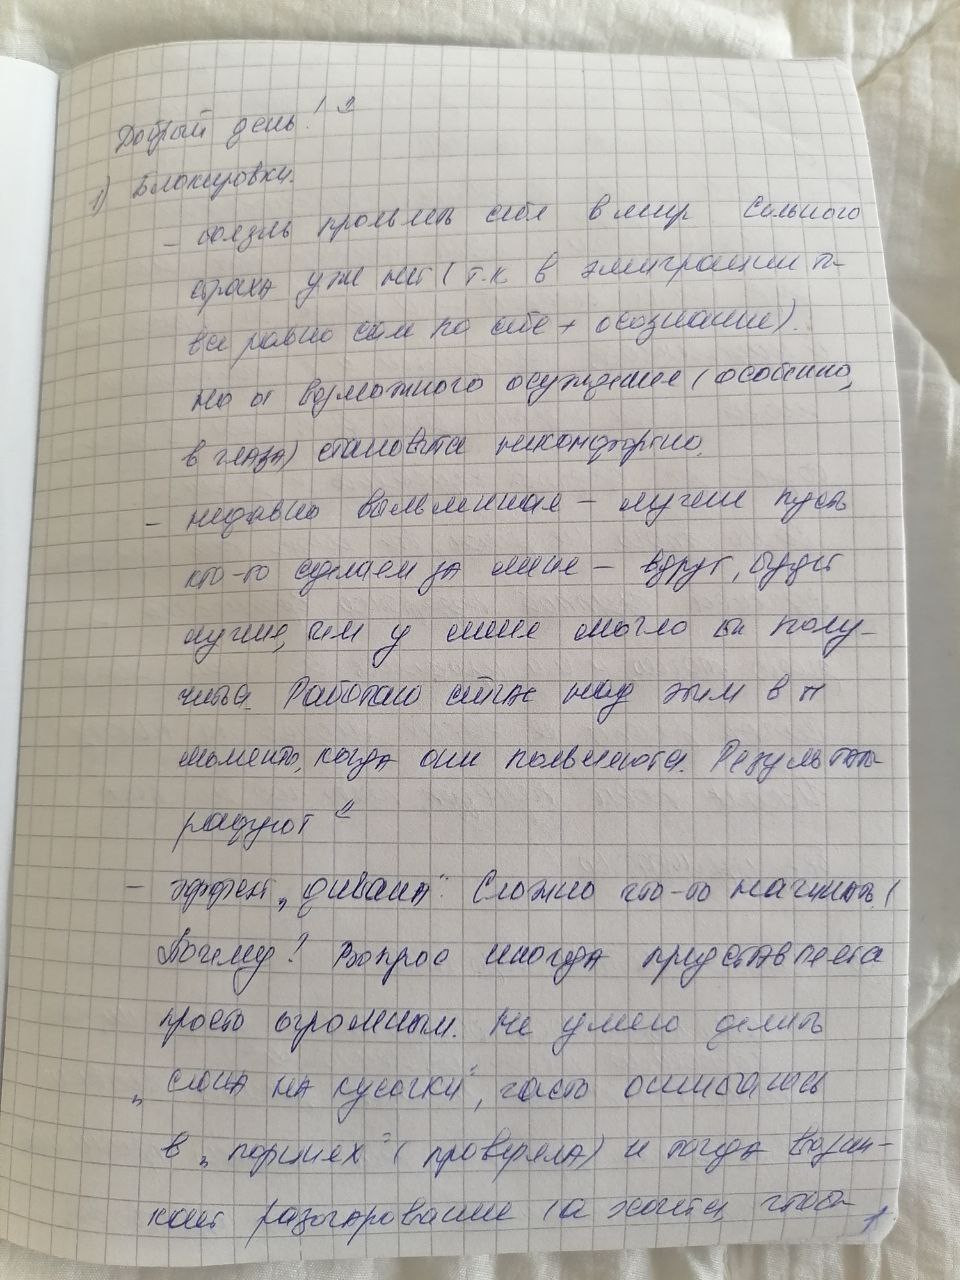 Добрый день! "
1) Блокировки.
- боязнь проявить себя в мир. Сильного
страха уже нет (т.к. в эмиграции ты
все равно сам по себе + осознание).
но от возможного осуждения (особенно,
в глаза) становится некомфортно.
- недавно выявленная - лучше пусть
кто-то сделает за меня - вдруг, будет
лучше, чем у меня могло бы полу-
читься. Работаю сейчас над этим в
моменты, когда они появляются. Результаты
радуют "
- эффект „дивана". Сложно что-то начинать!
Почему? Вопрос иногда представляется
просто огромным. Не умею делить
„слона на кусочки", часто ошибалась
в „порциях" (проверяла) и тогда возни-
кает разочарование (а хочется, чтобы
1